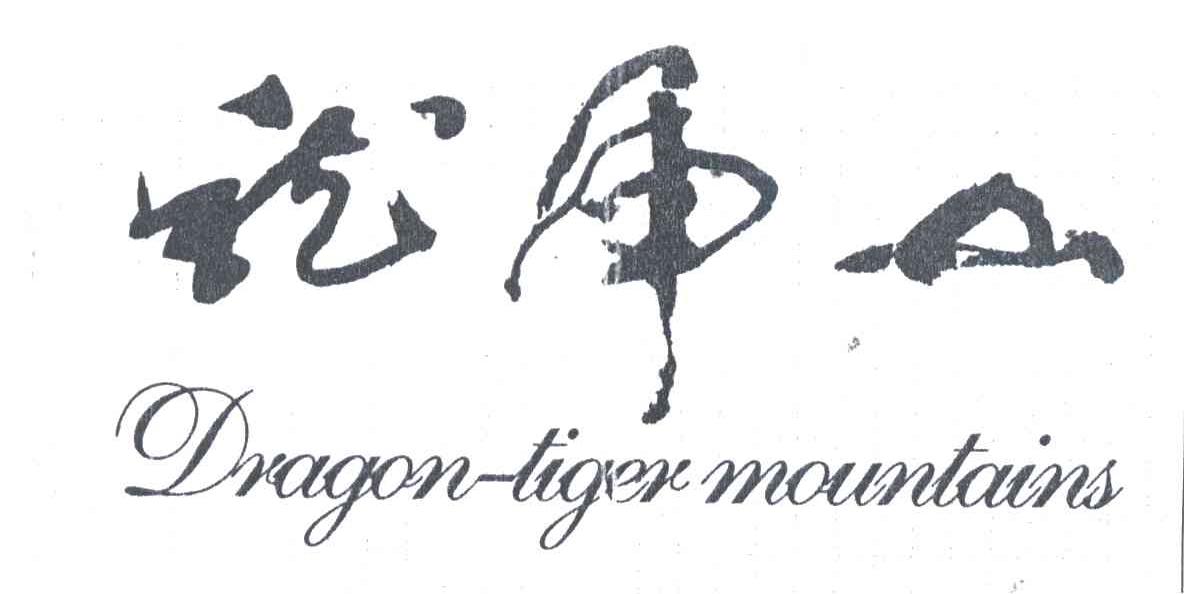 龙虎山
Dragon-tiger mountains